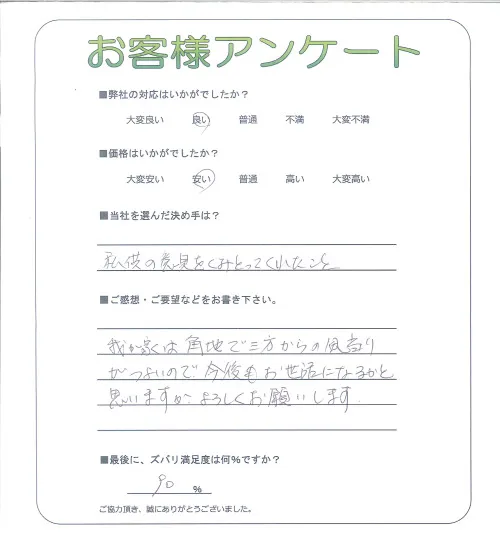 お客様アンケート
■弊社の対応はいかがでしたか？
大変良い 良い 普通 不満 大変不満
■価格はいかがでしたか？
大変安い 安い 普通 高い 大変高い
■当社を選んだ決め手は？
私供の意見をくみとってくれたこと
■ご感想・ご要望などをお書き下さい。
我が家は角地で三方からの風当り
がつよいので今後もお世話になるかと
思いますが、よろしくお願いします。
■最後に、ズバリ満足度は何％ですか？
90 %
ご協力頂き、誠にありがとうございました。